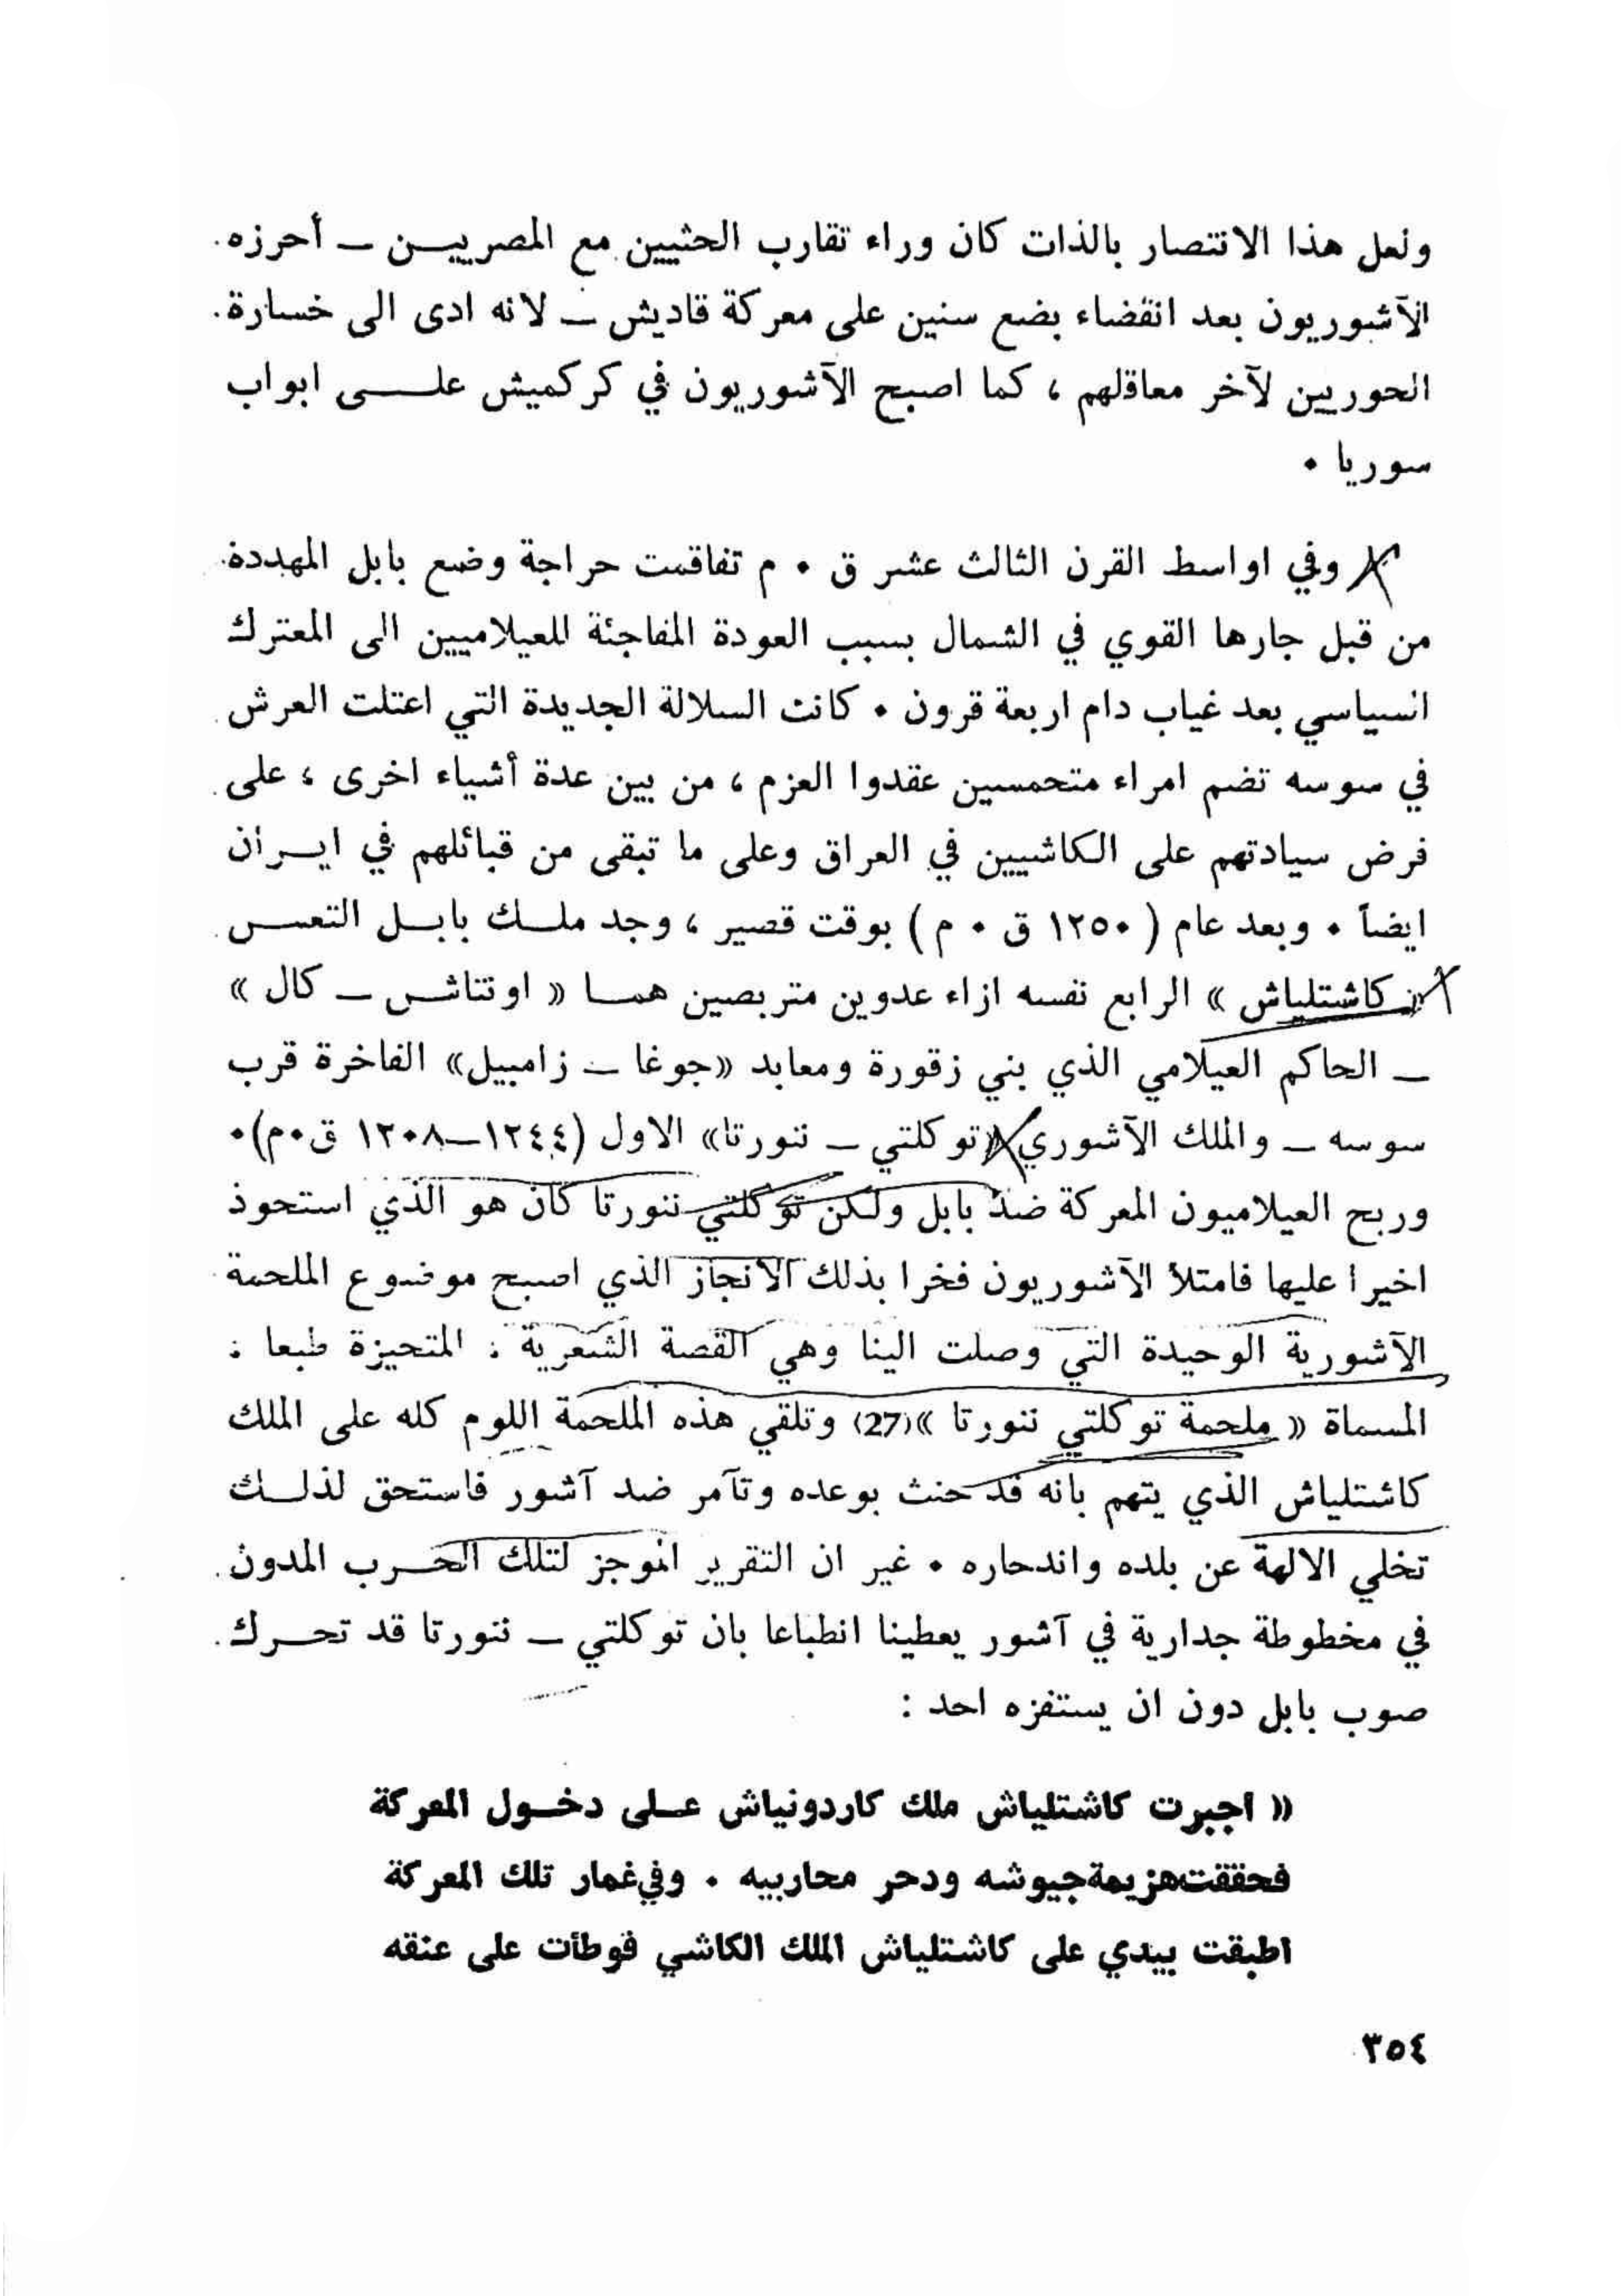 ولعل هذا الانتصار بالذات كان وراء تقارب الحثيين مع المصرييـن ـ أحرزه
الآشوريون بعد انقضاء بضع سنين على معركة قاديش ـ لانه ادى الى خسارة
الحوريين لآخر معاقلهم ، كما اصبح الآشوريون في كركميش علـــى ابواب
سوريا ٠
وفي اواسط القرن الثالث عشر ق ٠ م تفاقمت حراجة وضع بابل المهددة
من قبل جارها القوي في الشمال بسبب العودة المفاجئة للعيلاميين الى المعترك
السياسي بعد غياب دام اربعة قرون ٠ كانت السلالة الجديدة التي اعتلت العرش
في سوسه تضم امراء متحمسين عقدوا العزم ، من بين عدة أشياء اخرى ، على
فرض سيادتهم على الكاشيين في العراق وعلى ما تبقى من قبائلهم في ايــران
ايضاً ٠ وبعد عام ( ١٢٥٠ ق ٠ م ) بوقت قصير ، وجد ملــك بابــل التعس
« كاشتلياش » الرابع نفسه ازاء عدوين متربصين همــا « اونتاش ـ كال »
ـ الحاكم العيلامي الذي بني زقورة ومعابد «جوغا ـ زامبيل» الفاخرة قرب
سوسه ـ والملك الآشوري «توكلتي ـ ننورتا» الاول (١٢٤٤ـ١٢٠٨ ق٠م)٠
وربح العيلاميون المعركة ضد بابل ولكن توكلتي ننورتا كان هو الذي استحوذ
اخيرا عليها فامتلأ الآشوريون فخرا بذلك الانجاز الذي اصبح موضوع الملحمة
الآشورية الوحيدة التي وصلت الينا وهي القصة الشعرية ، المتحيزة طبعا ،
المسماة « ملحمة توكلتي ننورتا »(27) وتلقي هذه الملحمة اللوم كله على الملك
كاشتلياش الذي يتهم بانه قد حنث بوعده وتآمر ضد آشور فاستحق لذلــك
تخلي الالهة عن بلده واندحاره ٠ غير ان التقرير الموجز لتلك الحــرب المدون
في مخطوطة جدارية في آشور يعطينا انطباعا بان توكلتي ـ ننورتا قد تحــرك
صوب بابل دون ان يستفزه احد :
« اجبرت كاشتلياش ملك كاردونياش عــلى دخــول المعركة
فحققت هزيمة جيوشه ودحر محاربيه ٠ وفي غمار تلك المعركة
اطبقت بيدي على كاشتلياش الملك الكاشي فوطأت على عنقه
٣٥٤